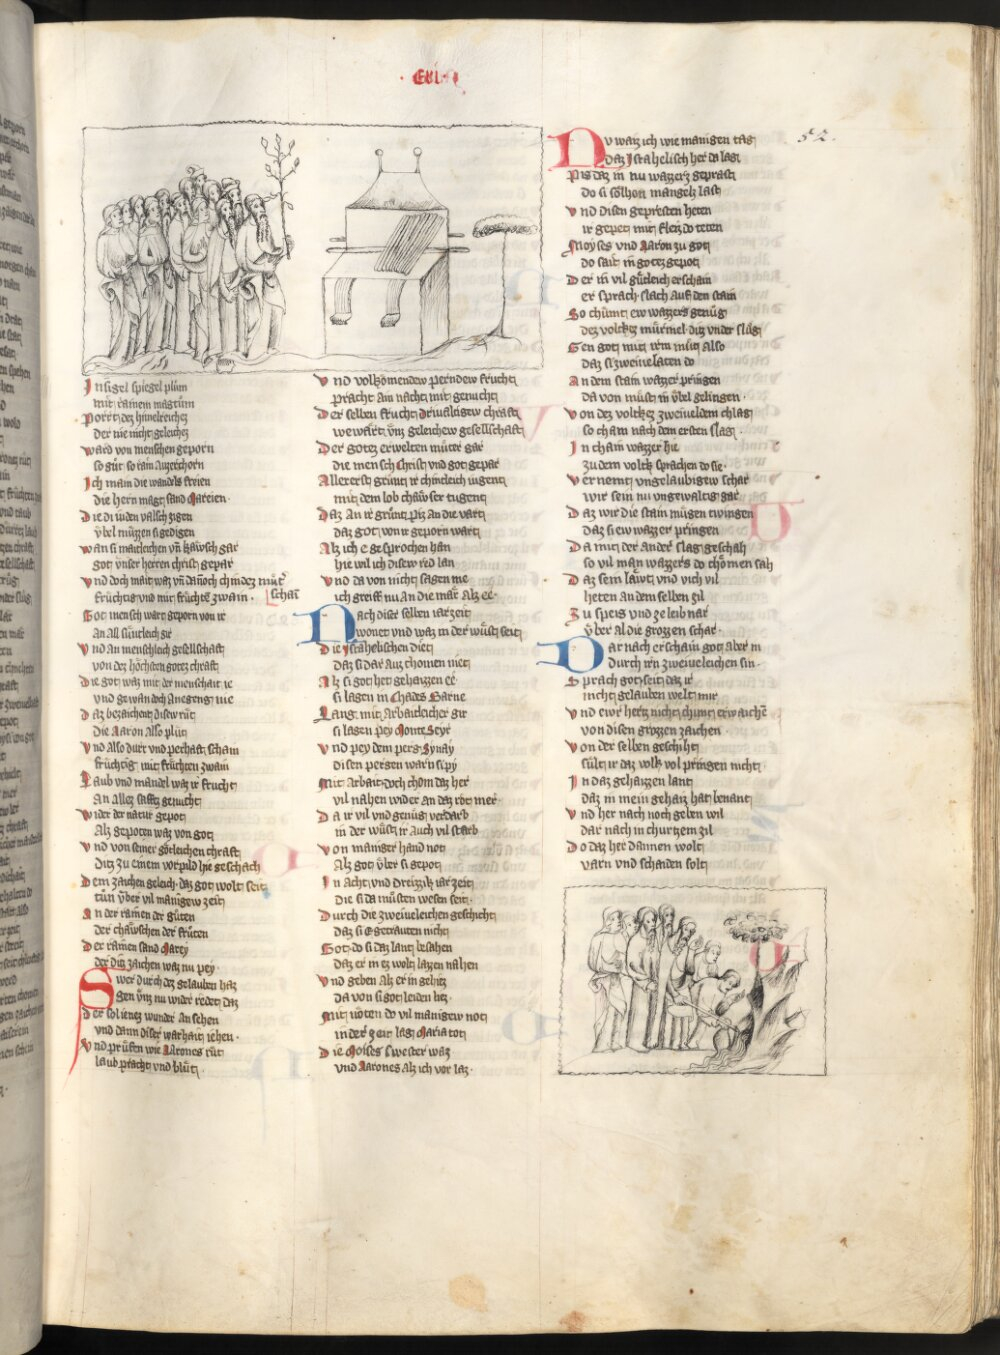 52.
Insigel spiegel plum
mit rainem magtum
Porrt dez himelreichez
der nie nicht geleichez
ward von menschen geporn
so gůt so rain auzerchorn
Ich main die wandels freien
die hern magt sand Mareien.
Die di iuden valsch zigen
vͤbel můzzen si gedigen
wan si maitleichen vñ kawsch gar
got vnser herren christ gepar
vnd doch mait waz vñ dannoch chindez můt
fruchtig vnd mit fruchte zwain. schait
Got mensch wart geporn von ir
An all suntleich gir
vnd An menschleich gesellschaft
von dez hochsten gotes chraft
Die got waz mit der menschait ie
vnd gewan doch Anegeng nie
Daz bezaichent disew růt
die Aaron also plůt
vnd Also durr vnd perhaft scham
fruchtig mit fruchten zwain
Laub vnd mandel waz ir frucht
An allez saftz genucht
wider der natur gepot
Alz gepoten waz von got
vnd von seiner gotleichen chraft
Ditz zu einem vorpild hie geschach
Dem zaichen geleich daz got wolt seit
tůn vber vil manigew zeit
An der rainen der gůten
der chawschen der frůten
Der rainen sand Marey
der ditz zaichen waz nu pey.
Swer durch dez gelauben haz
Gegen vnz nu wider redet daz
der sol ienez wunder An sehen
vnd dann diser warhait iehen.
vnd průfen wie Aarones růt
laub pracht vnd blůt
vnd volkomendew perndew frucht
pracht Ain nacht mit genucht
Der selben frucht drivaltigew chraft
we wart vnz geleichew gesellschaft
Der gotez erwelten můter gar
die mensch christ vnd got gepar
Allererst grunt ir chintleich iugent
mit dem lob chawscher tugent
Daz An ir grunt piz An die vart
daz got von ir geporn wart
Alz ich e gesprochen han
hie wil ich disew red lan
vnd da von nicht sagen me
ich greiff nu An die mær Alz ee.
Nach diser selben iarzeit
wonet vnd waz in der wust seit
Die Israhelischen diet
daz si dar auz chomen niet
Alz si got het gehaizzen ee
si lagen in Chades Barne
Lang mit Arbaitleicher gir
si lagen pey Monte Seyr
vnd pey dem perg Synay
disen pergen warn si py
Mit Arbait doch chom daz her
vil nahen wider an daz rot mer.
Da ir vil vnd genug verdarb
in der wust ir Auch vil starb
von maniger hand not
Alz got vber si gepot
In acht vnd dreizzik iar zeit
die si da musten wesen seit
Durch die zweiveleichen geschicht
daz si Es getrauten nicht
Got do si daz lant besahen
daz er in ez wolt lazzen nahen
vnd geben Alz er in gehiez
da von si got leiden liez.
Mit noten do vil manigew not
in der zeit lag Maria tot
Die Moises swester waz
vnd Aarones Alz ich vor laz.
Nv waiz ich wie manigen tag
Daz Israhelisch her da lag
Pis daz in nu wazzerz geprast
do si solhen mangelz last
vnd disen gepresten heten
ir gepet mit fleiz do teten
Moyses vnd Aaron zu got
do sait in gotez gepot
Der in vil gůtleich erscham
er sprach slach Auf den stain
So chumt ew wazzers genug
dez volckez murmel ditz vnder slůg
Gen got mit irm můt Also
daz si zweivelaten do
An dem stain wazzer pringen
da von můst in vbel gelingen.
von dez volckez zweiveldem chlag
so cham nach dem ersten slag.
In cham wazzer hie
zu dem volck sprachen do sie.
vernemt vngelaubigew schar
wir sein nu vngewaltig gar
Daz wir die stain mugen twingen
daz si ew wazzer pringen
Da mit der ander slag geschah
so vil man wazzers do chomen sah
Daz sein lawt vnd vich vil
heten an dem selben zil
Zu speis vnd ze leib nar
vber al die grozzen schar.
Dar nach erscham got Aber in
Durch irn zweiveleichen sin.
Sprach got seit daz ir
nicht gelauben welt mir
vnd ewr hertz nicht chunt erwaichen
von disen grozzen zaichen
von der selben geschiht
sult ir daz volk vol pringen nicht.
In daz gehaizzen lant
daz in mein gehaiz hat benant
vnd her nach noch geben wil
dar nach in churtzem zil
Do daz her dannen wolt
varn vnd schaiden solt